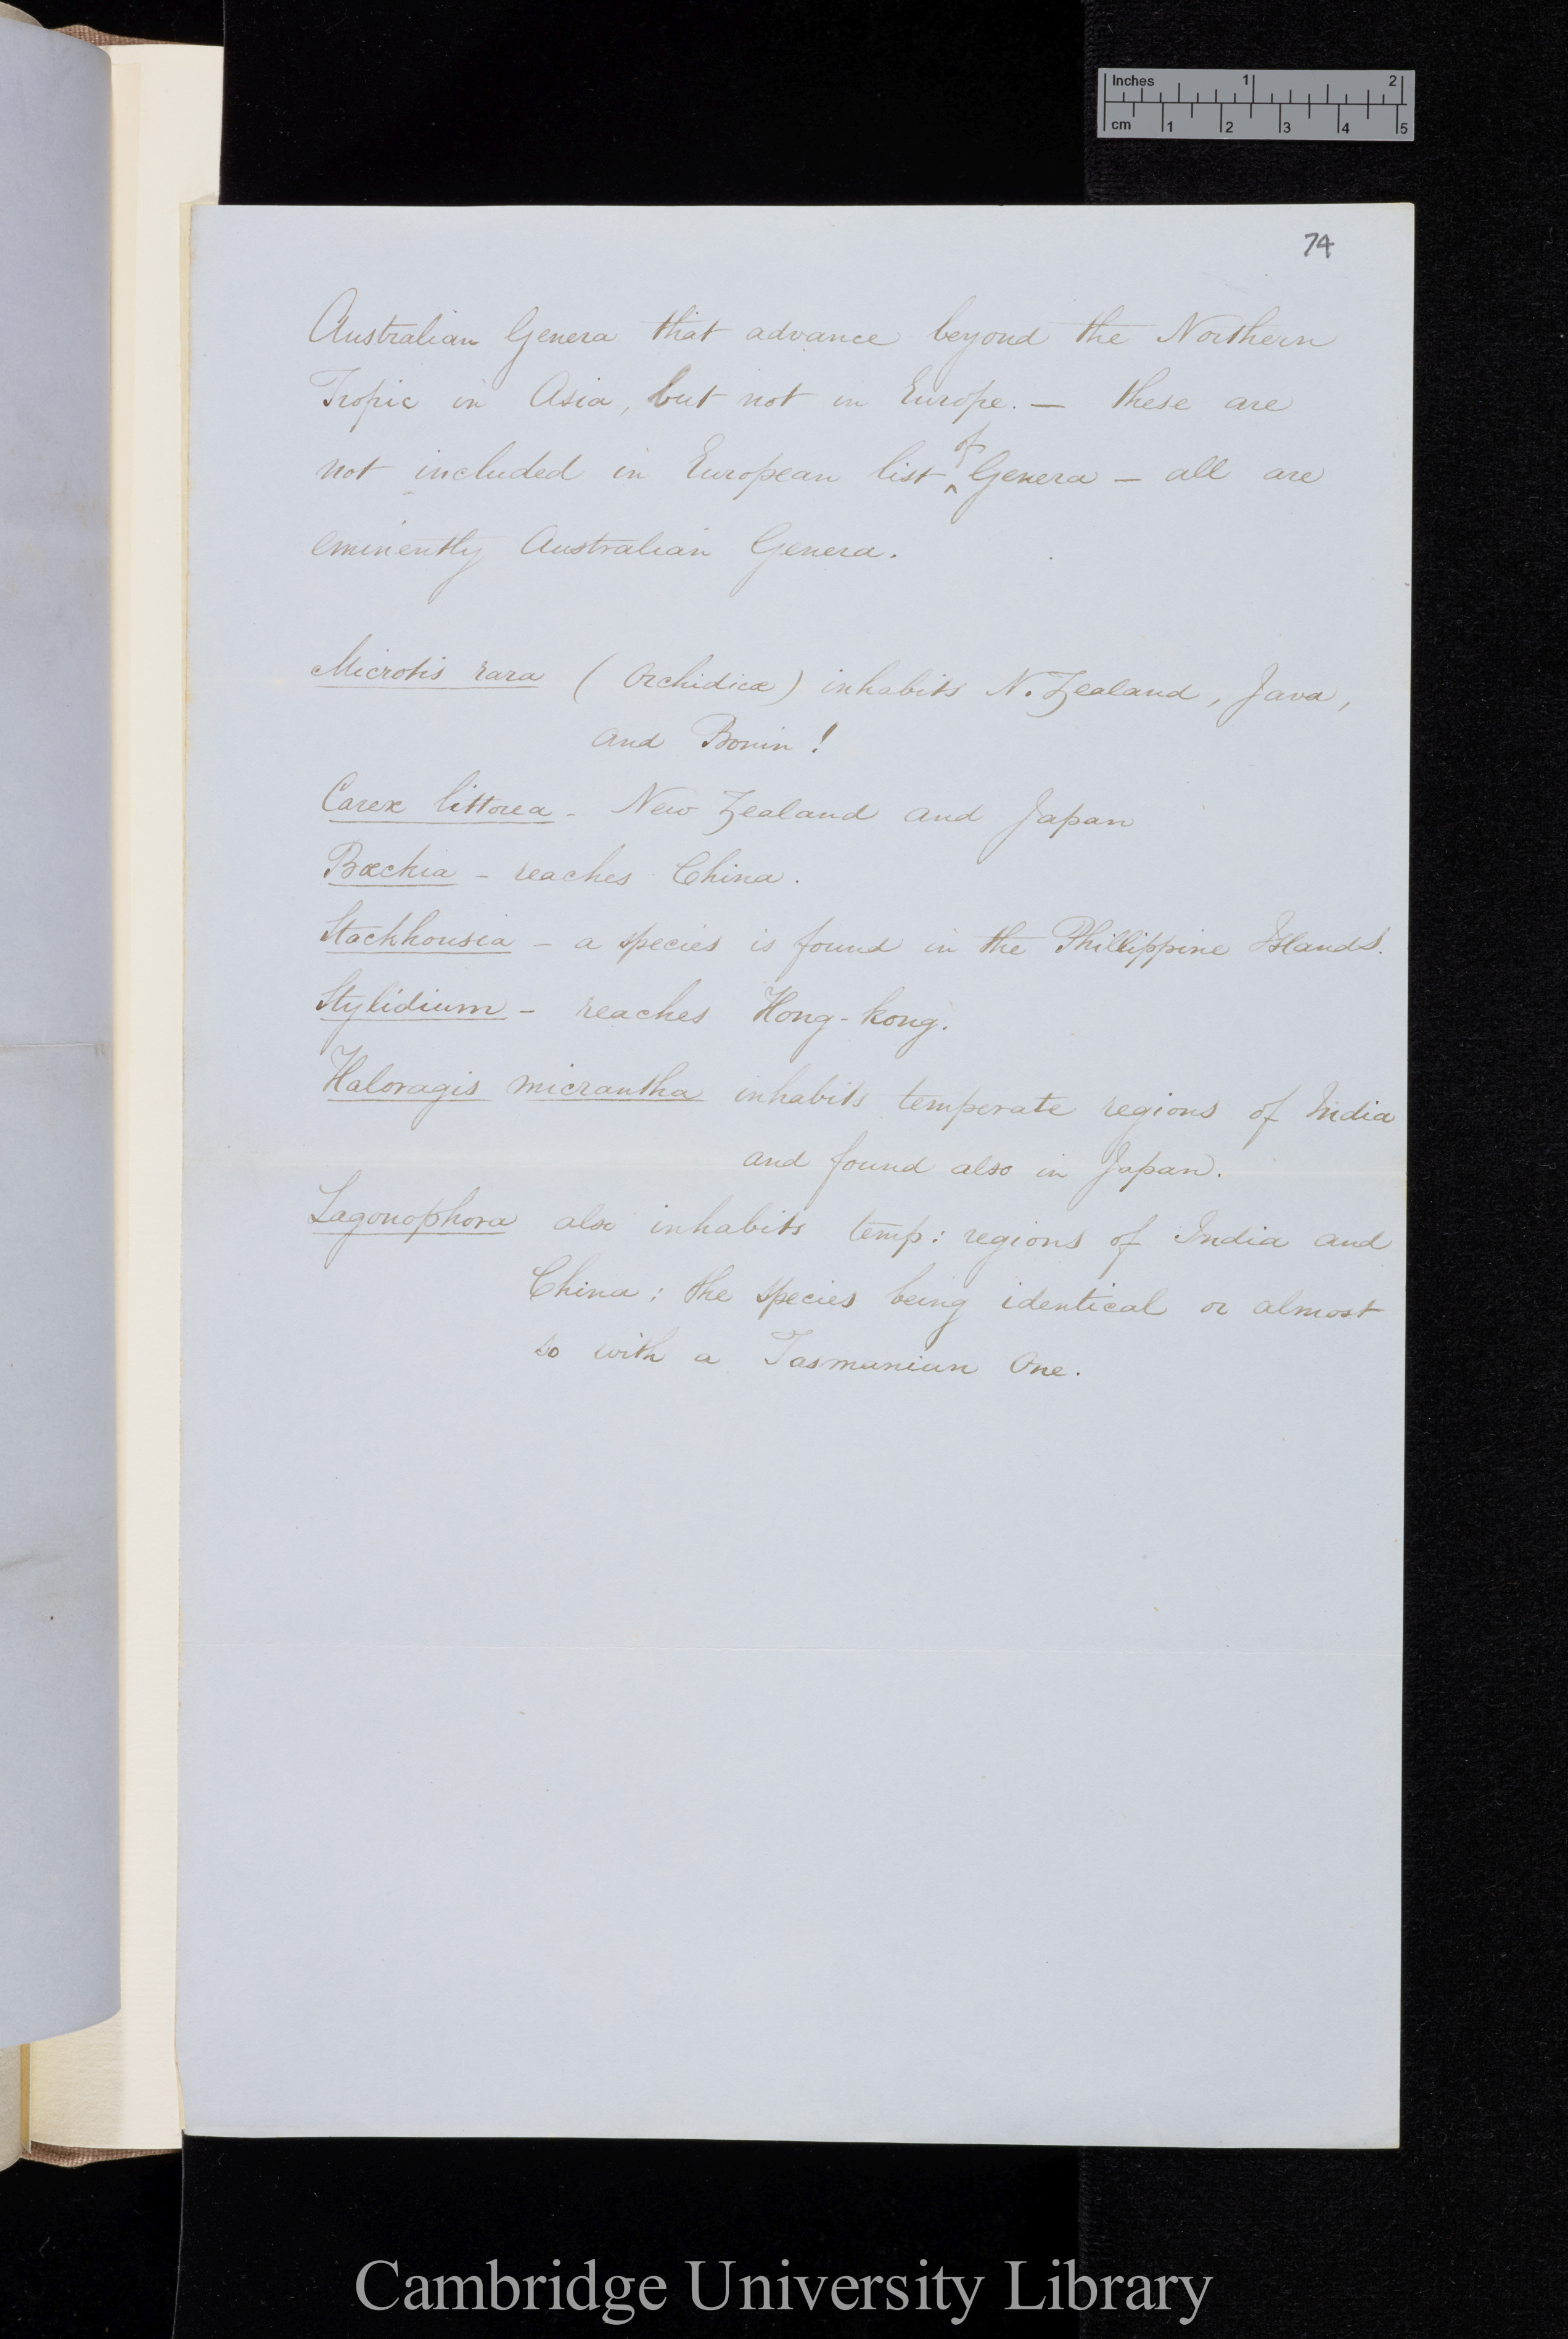 Inches 1 2
cm 1 2 3 4 5
74
Australian Genera that advance beyond the Northern
Tropic in Asia, but not in Europe. — these are
not included in European list of Genera — all are
eminently Australian Genera.
Microtis rara (Orchidiæ) inhabits N. Zealand, Java,
and Bonin!
Carex littorea - New Zealand and Japan
Bæckia - reaches China.
Stackhousia - a species is found in the Phillippine Islands.
Stylidium - reaches Hong-kong.
Haloragis micrantha inhabits temperate regions of India
and found also in Japan.
Lagonophora also inhabits temp: regions of India and
China; the species being identical or almost
so with a Tasmanian One.
Cambridge University Library